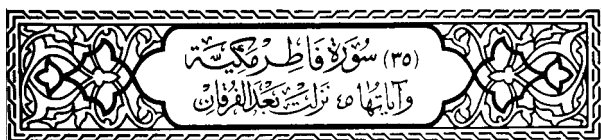 (٣٥) سُورَة فَاطِر مَكِّيَّة
وَآيَاتُهَا ٤٥ نَزَلَتْ بَعْدَ الفُرْقَانِ